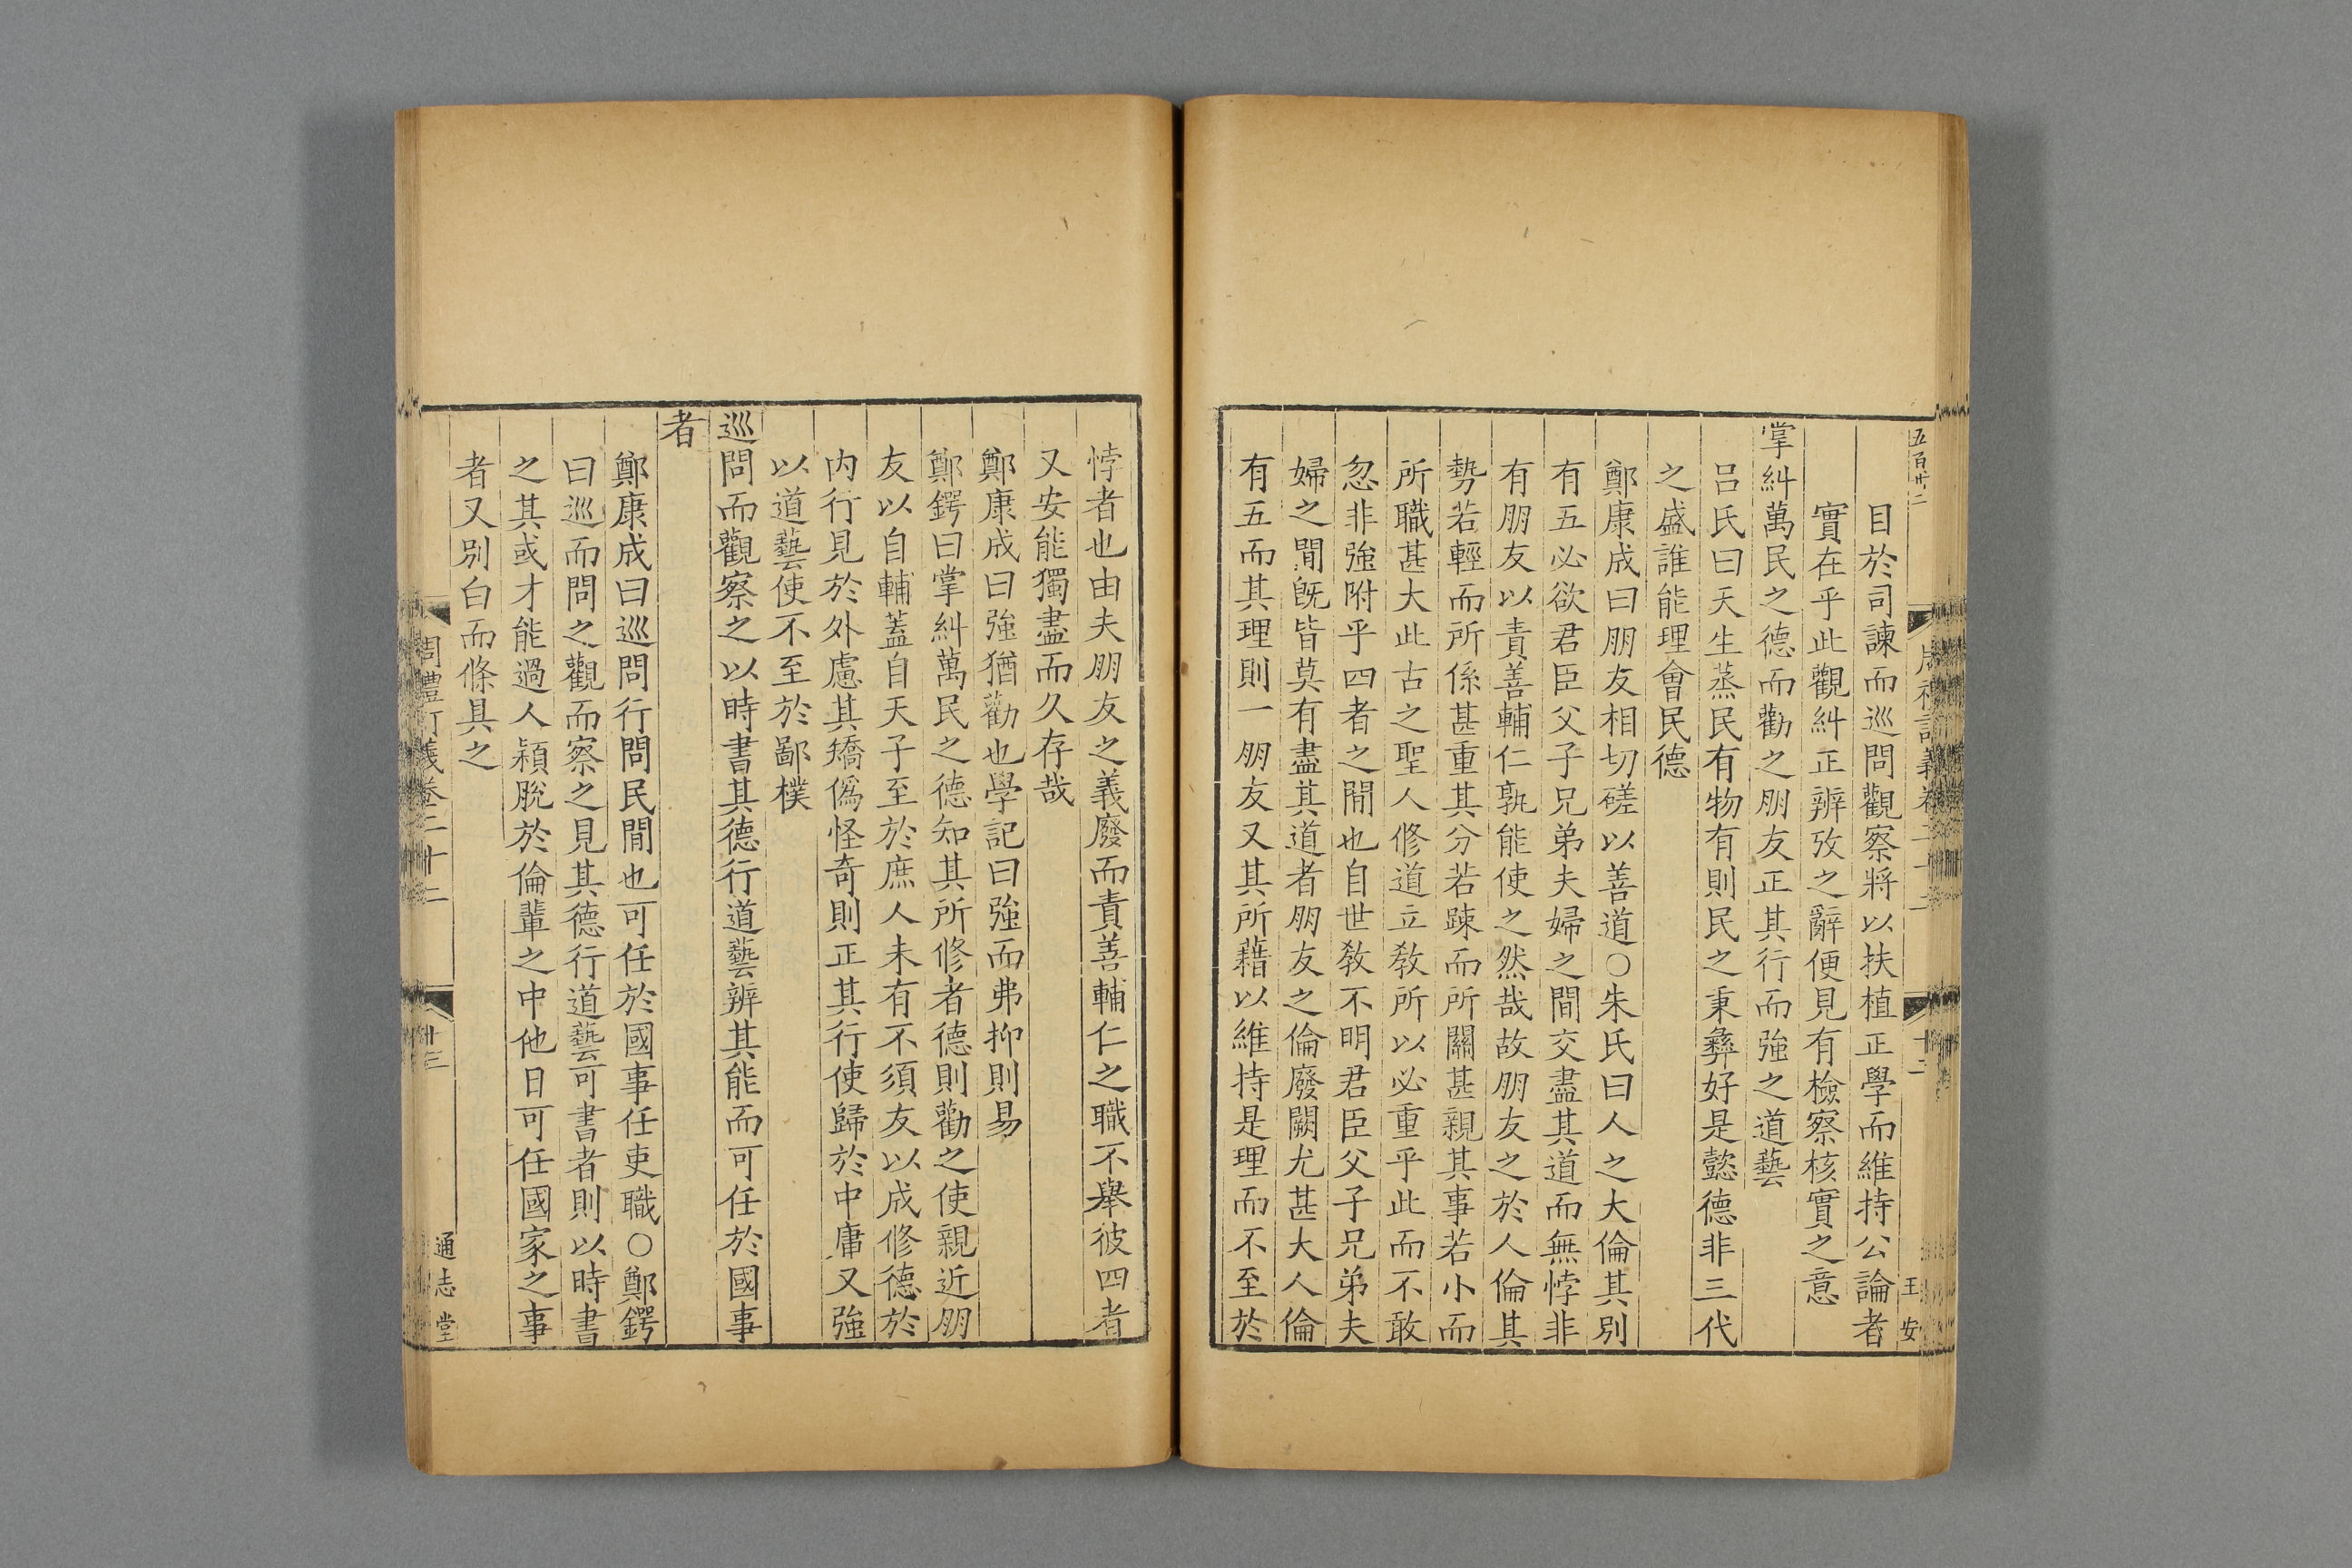 五百卄二
十二
王安
目於司諫而巡問觀察將以扶植正學而維持公論者
實在乎此觀糾正辨攷之辭便見有檢察核實之意
掌糾萬民之德而勸之朋友正其行而強之道藝
呂氏曰天生蒸民有物有則民之秉彝好是懿德非三代
之盛誰能理會民德
鄭康成曰朋友相切磋以善道○朱氏曰人之大倫其別
有五必欲君臣父子兄弟夫婦之間交盡其道而無悖非
有朋友以責善輔仁孰能使之然哉故朋友之於人倫其
勢若輕而所係甚重其分若踈而所關甚親其事若小而
所職甚大此古之聖人修道立敎所以必重乎此而不敢
忽非強附乎四者之閒也自世敎不明君臣父子兄弟夫
婦之閒旣皆莫有盡其道者朋友之倫廢闕尤甚大人倫
有五而其理則一朋友又其所藉以維持是理而不至於
悖者也由夫朋友之義廢而責善輔仁之職不舉彼四者
又安能獨盡而久存哉
鄭康成曰強猶勸也學記曰強而弗抑則易
鄭鍔曰掌糾萬民之德知其所修者德則勸之使親近朋
友以自輔蓋自天子至於庶人未有不須友以成修德於
内行見於外慮其矯僞怪奇則正其行使歸於中庸又強
以道藝使不至於鄙樸
巡問而觀察之以時書其德行道藝辨其能而可任於國事
者
鄭康成曰巡問行問民閒也可任於國事任吏職○鄭鍔
曰巡而問之觀而察之見其德行道藝可書者則以時書
之其或才能過人穎脫於倫輩之中他日可任國家之事
者又別白而條具之
周禮訂義卷二十二
卄三
通志堂